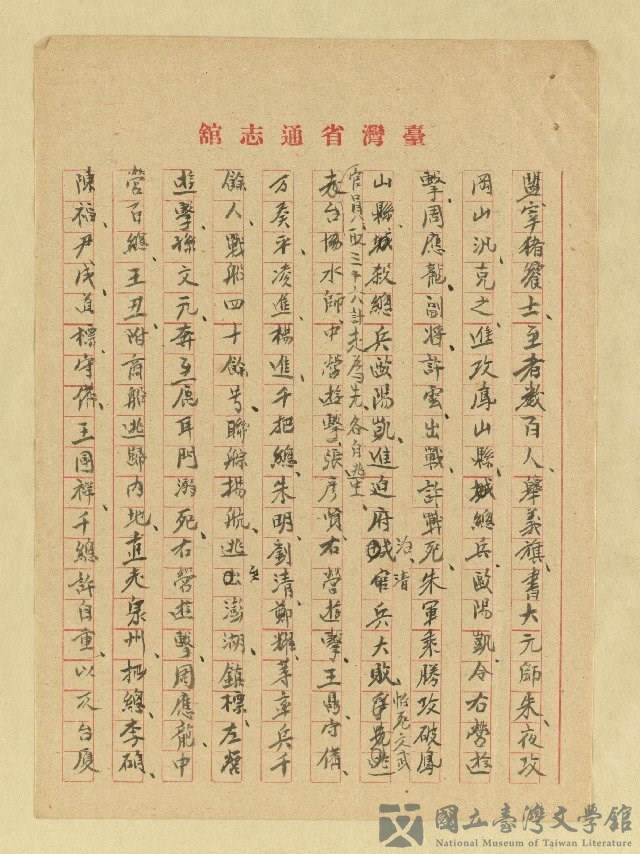 館志通省灣臺
盟宰豬饗士、至者數百人、舉義旗、書大元帥朱、夜攻
岡山汛、克之、進攻鳳山縣城、總兵歐陽凱令右營遊
擊周應龍、副將許雲出戰、許戰死、朱軍乘勝攻破鳳
山縣城、殺總兵歐陽凱、進迫府治、清官兵大敗、怕死文武
官員、以三十六計走為先、各自逃生、
台協水師中營遊擊張彥賢、右營遊擊王鼎、守備
万奏平、凌進、楊進、千把總朱明、劉清、鄭耀等率兵千
餘人、戰船四十餘号、聯䑸揚航逃至澎湖、鎮標左營
遊擊孫文元奔至鹿耳門溺死、右營遊擊周應龍、中
營百總王丑、附商船逃歸內地、直走泉州、把總李碩、
陳福、尹成、道標守備王國祥、千總許自重、以及台廈
國立臺灣文學館
National Museum of Taiwan Literature